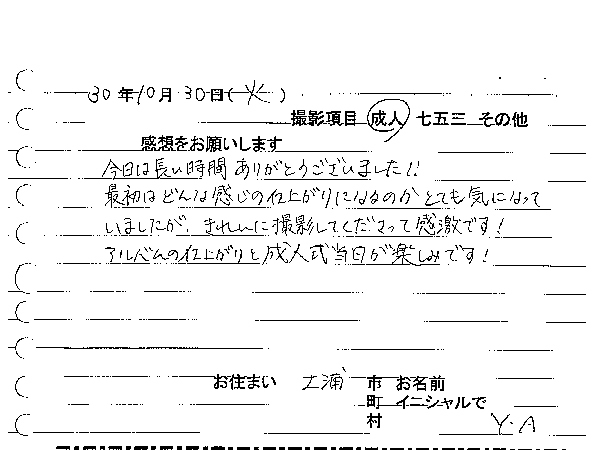 30年10月30日(火)
撮影項目 成人 七五三 その他
感想をお願いします
今日は長い時間ありがとうございました!!
最初はどんな感じの仕上がりになるのかとても気になって
いましたが、きれいに撮影してくださって感激です!
アルバムの仕上がりと成人式当日が楽しみです!
お住まい 土浦 市 お名前
町 イニシャルで
村 Y.A